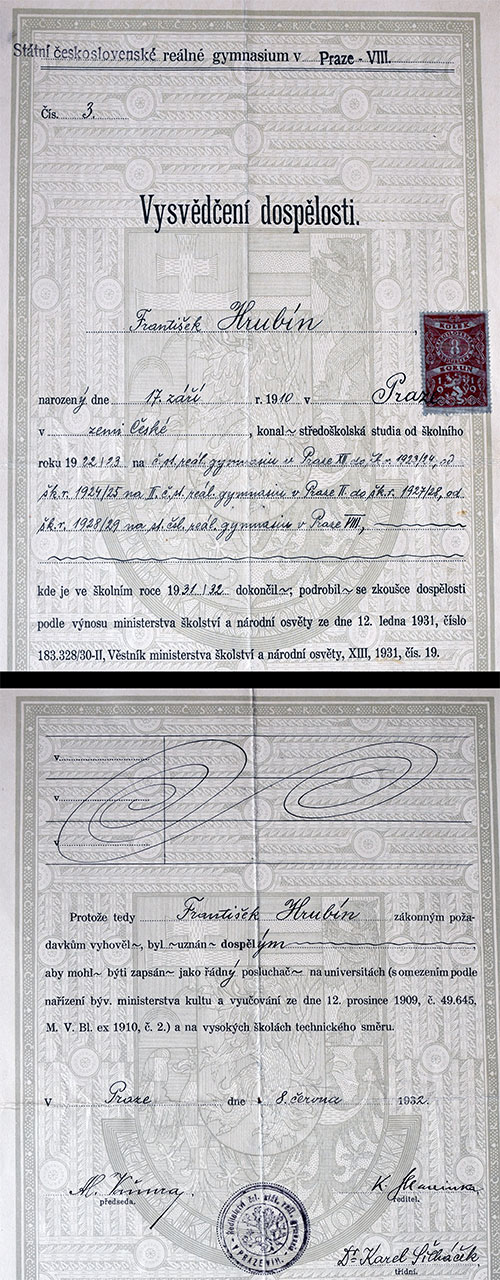 Státní československé reálné gymnasium v Praze - VIII.
Čís. 3.
Vysvědčení dospělosti.
František Hrubín,
KOLEK
8
KORUN
narozený dne 17. září r. 1910 v Praze
v zemi České, konal~ středoškolská studia od školního
roku 1922/23 na č. st. reál. gymnasiu v Praze XII do šk. r. 1923/24, od
šk. r. 1924/25 na II. č. st. reál. gymnasiu v Praze II. do šk. r. 1927/28, od
šk. r. 1928/29 na st. čsl. reál. gymnasiu v Praze VIII.,
kde je ve školním roce 1931/32 dokončil~; podrobil~ se zkoušce dospělosti
podle výnosu ministerstva školství a národní osvěty ze dne 12. ledna 1931, číslo
183.328/30-II, Věstník ministerstva školství a národní osvěty, XIII, 1931, čís. 19.
v
v
v
Protože tedy František Hrubín zákonným poža-
davkům vyhověl~, byl ~ uznán ~ dospělým,
aby mohl~ býti zapsán~ jako řádný posluchač~ na universitách (s omezením podle
nařízení býv. ministerstva kultu a vyučování ze dne 12. prosince 1909, č. 49.645,
M. V. Bl. ex 1910, č. 2.) a na vysokých školách technického směru.
V Praze dne 8. června 1932.
předseda.
K.
ředitel.
V PRAZE VIII.
Dr Karel Šilháček
třídní.